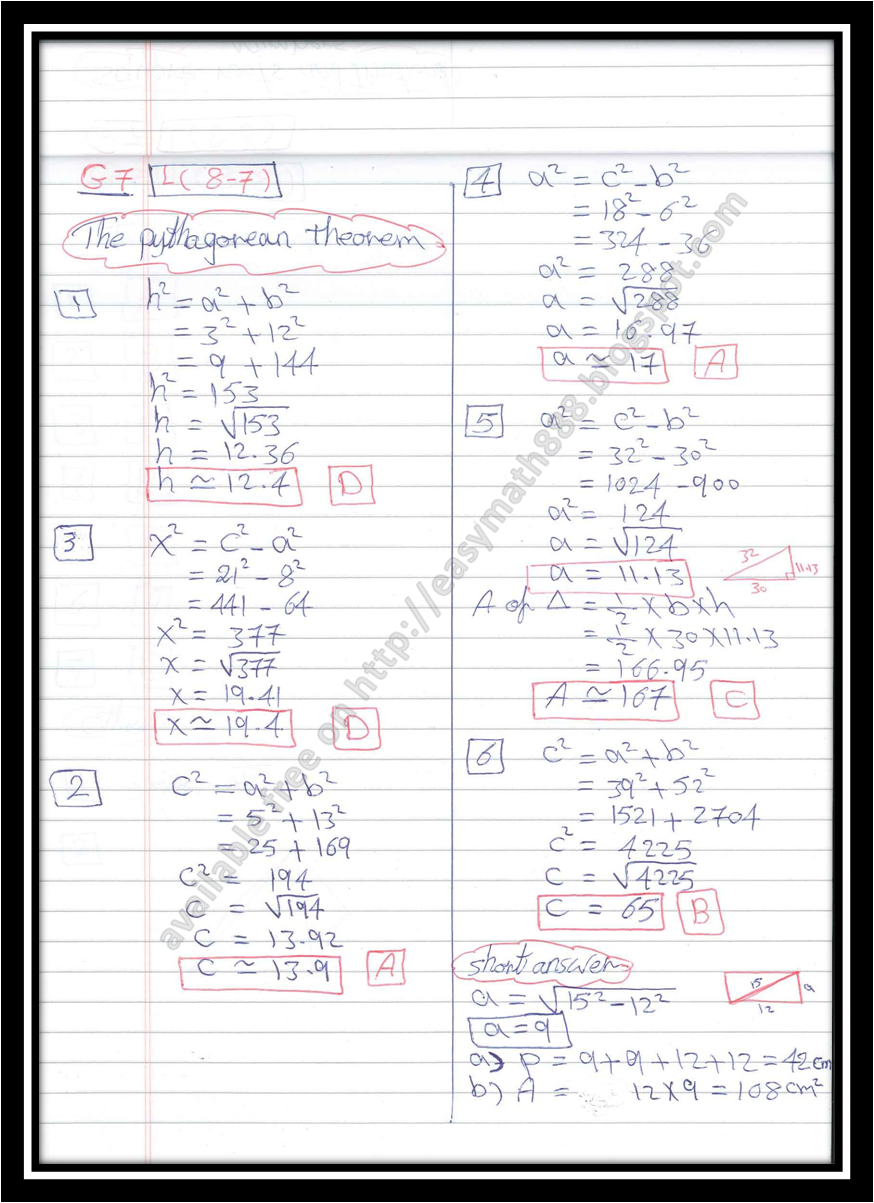 G7 L(8-7)
The pythagorean theorem
1 h² = a² + b²
= 3² + 12²
= 9 + 144
h² = 153
h = √153
h = 12.36
h ≃ 12.4 D
3 x² = c² - a²
= 21² - 8²
= 441 - 64
x² = 377
x = √377
x = 19.41
x ≃ 19.4 D
2 c² = a² + b²
= 5² + 13²
= 25 + 169
c² = 194
c = √194
c = 13.92
c ≃ 13.9 A
4 a² = c² - b²
= 18² - 6²
= 324 - 36
a² = 288
a = √288
a = 16.97
a ≃ 17 A
5 a² = c² - b²
= 32² - 30²
= 1024 - 900
a² = 124
a = √124
a = 11.13
32
11.13
30
A of Δ = 1/2 × b × h
= 1/2 × 30 × 11.13
= 166.95
A ≃ 167 C
6 c² = a² + b²
= 39² + 52²
= 1521 + 2704
c² = 4225
c = √4225
c = 65 B
short answer
a = √15² - 12²
15
9
12
a = 9
a) P = 9 + 9 + 12 + 12 = 42 cm
b) A = 12 × 9 = 108 cm²
available free on http://easymath888.blogspot.com